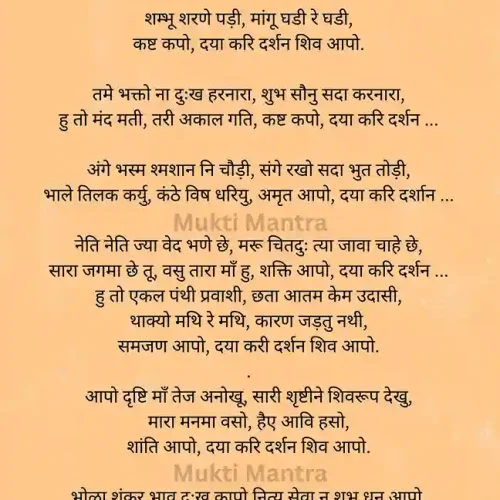 शम्भू शरणे पड़ी, मांगू घडी रे घडी,
कष्ट कपो, दया करि दर्शन शिव आपो.
तमे भक्तो ना दुःख हरनारा, शुभ सौनु सदा करनारा,
हु तो मंद मती, तरी अकाल गति, कष्ट कपो, दया करि दर्शन ...
अंगे भस्म श्मशान नि चौड़ी, संगे रखो सदा भुत तोड़ी,
भाले तिलक कर्यु, कंठे विष धरियु, अमृत आपो, दया करि दर्शान ...
Mukti Mantra
नेति नेति ज्या वेद भणे छे, मरू चितदुः त्या जावा चाहे छे,
सारा जगमा छे तू, वसु तारा माँ हु, शक्ति आपो, दया करि दर्शन ...
हु तो एकल पंथी प्रवाशी, छता आतम केम उदासी,
थाक्यो मथि रे मथि, कारण जड़तु नथी,
समजण आपो, दया करी दर्शन शिव आपो.
.
आपो दृष्टि माँ तेज अनोखू, सारी शृष्टीने शिवरूप देखु,
मारा मनमा वसो, हैए आवि हसो,
शांति आपो, दया करि दर्शन शिव आपो.
Mukti Mantra
भोळा शंकर भाव दुःख कापो नित्य सेवा न शुभ धन आपो